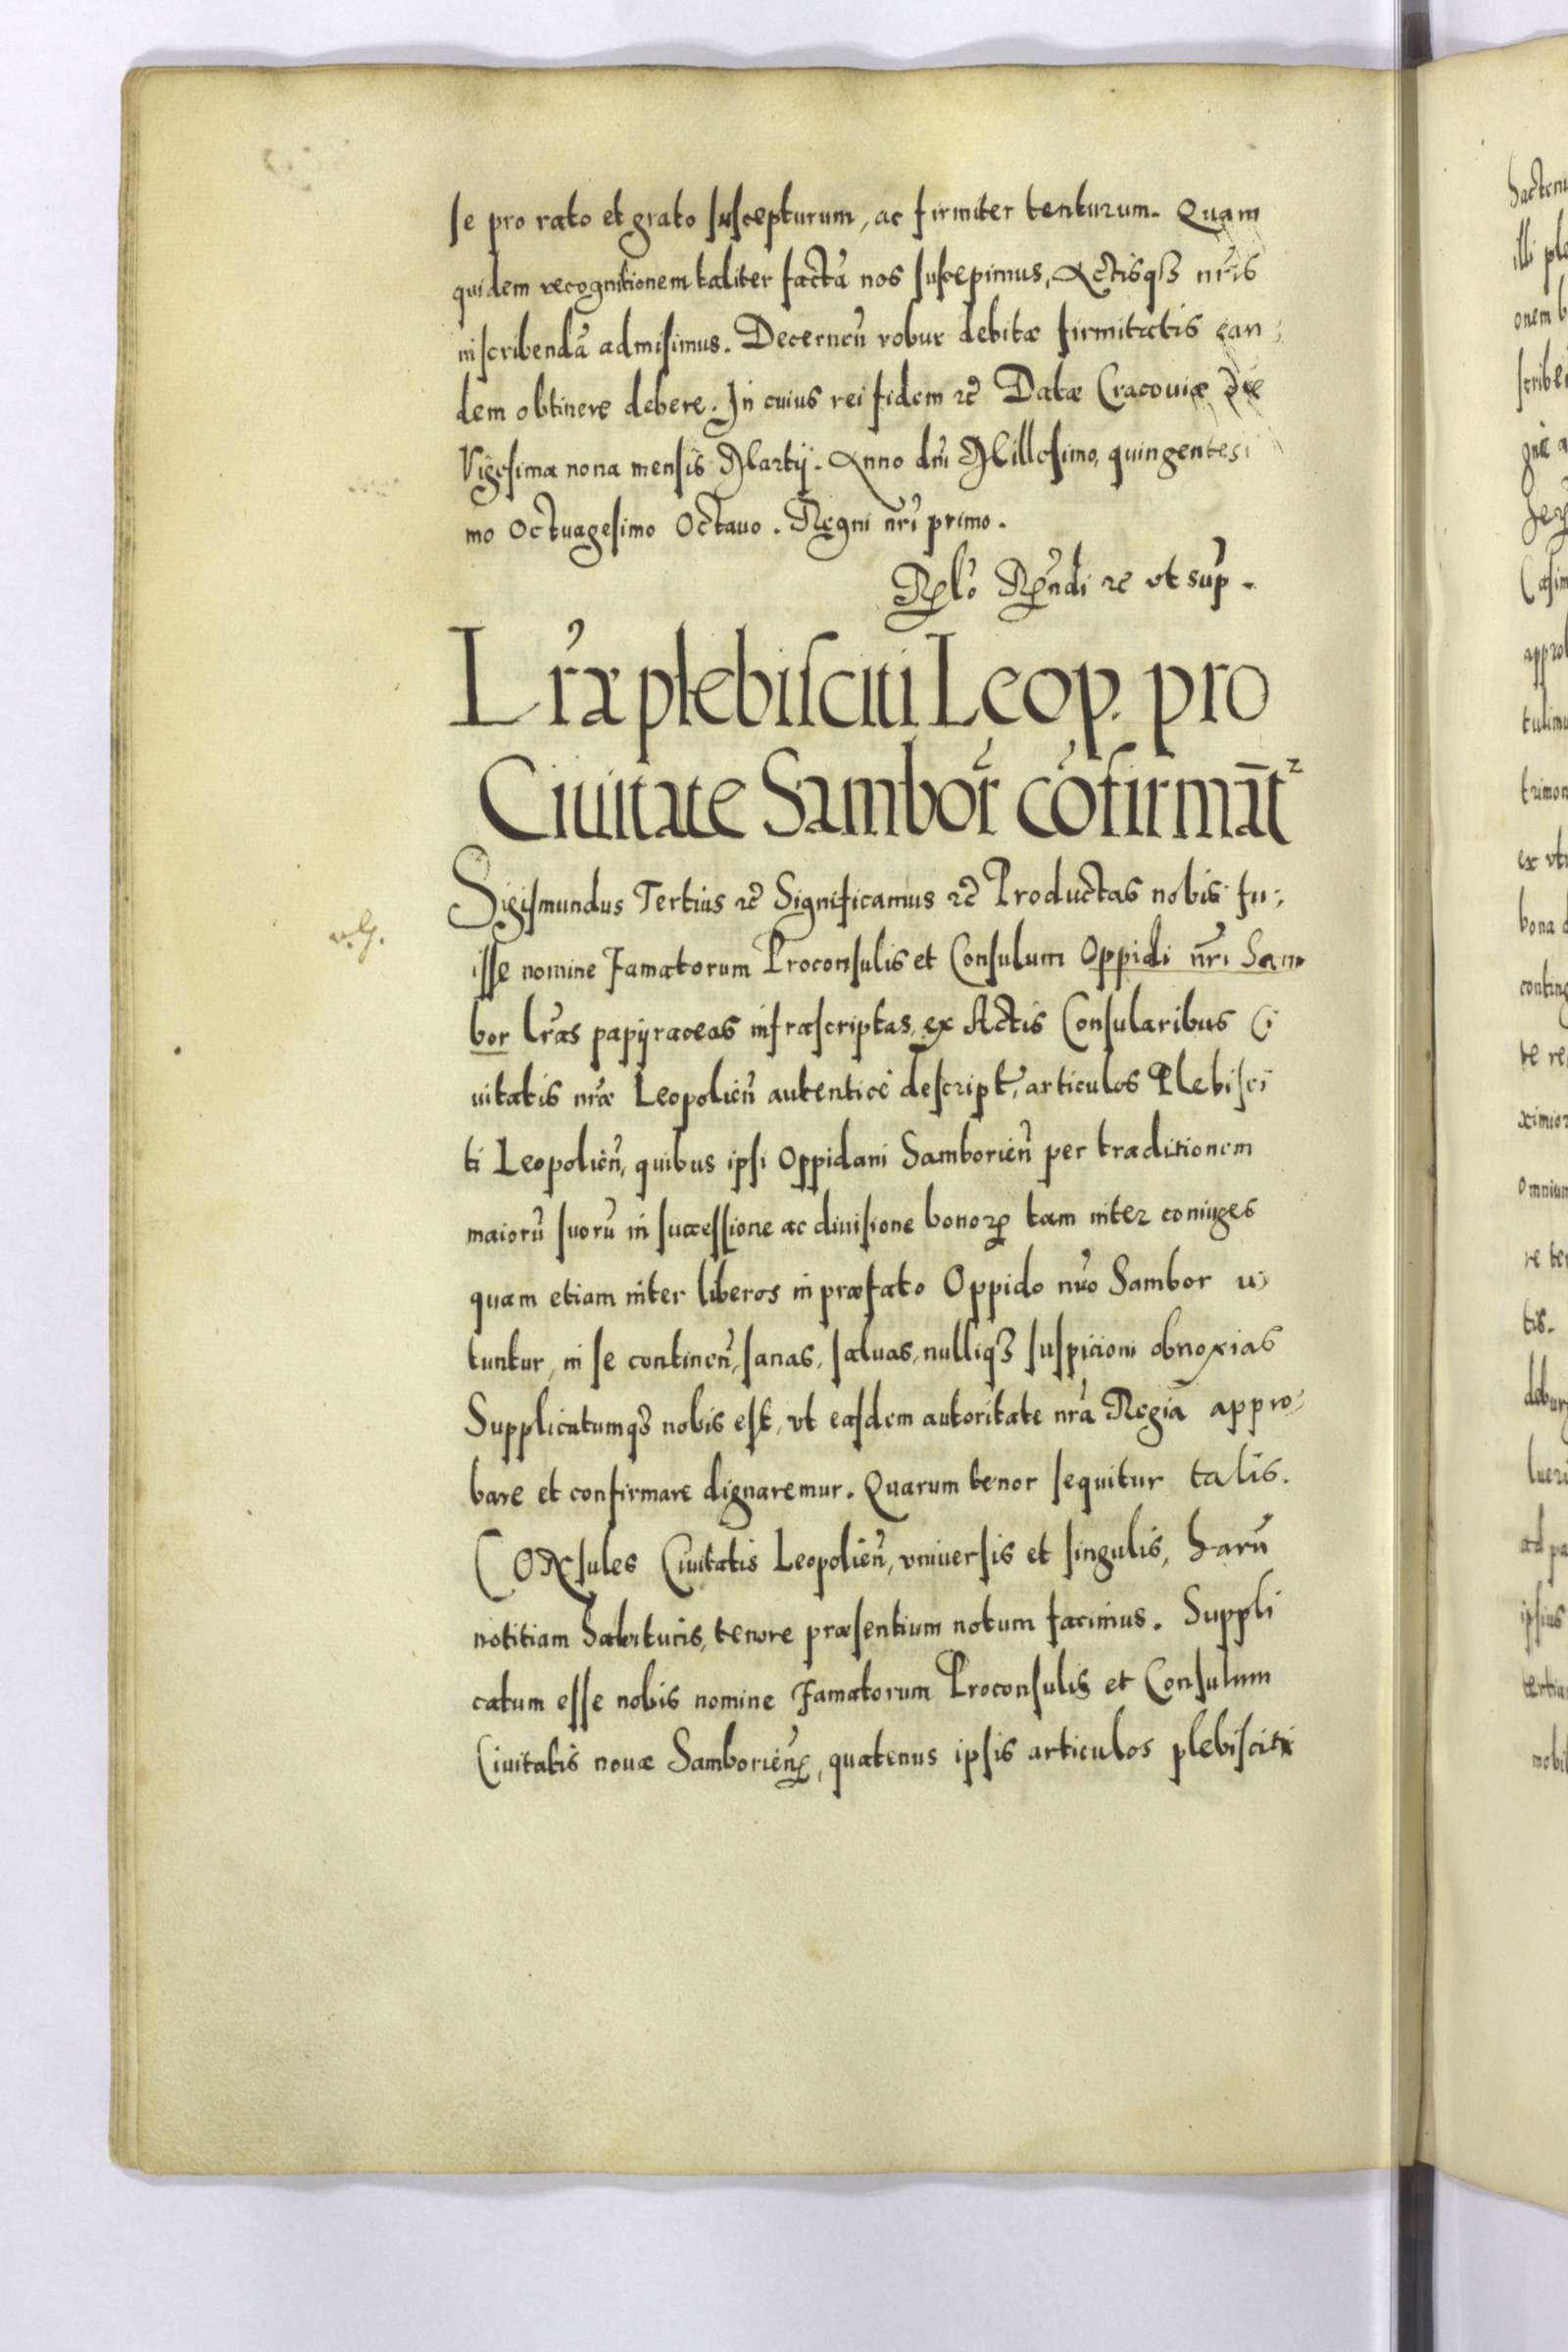 se pro rato et grato suscepturum, ac firmiter tenturum. Quam
quidem recognitionem taliter factā nos suscepimus, Actisqȝ nr̃is
inscribendā admisimus. Decerneñ robur debitæ firmitatis ean-
dem obtinere debere. In cuius rei fidem ꝛc̃ Datæ Cracouiæ die
Vigesima nona mensis Martij. Anno dni Millesimo, quingentesi
mo Octuagesimo Octauo. Regni nr̃i primo.
ꝛc ut sup̃.
Lr̃æ plebisciti Leop. pro
Ciuitate Sambor̃ cõfirmãt²
Sigismundus Tertius ꝛc̃ Significamus ꝛc̃ Productas nobis fu-
isse nomine Famatorum Proconsulis et Consulum Oppidi nr̃i Sam
bor lr̃as papijraceas infrascriptas, ex Actis Consularibus Ci
uitatis nr̃æ Leopolień autenticè descript̃, articulos Plebisci
ti Leopolień, quibus ipsi Oppidani Samborień per traditionem
maiorũ suorũ in successione ac diuisione bonoꝝ tam inter coniuges
quam etiam inter liberos in præfato Oppido nr̃o Sambor u-
tuntur, in se contineñ, sanas, saluas, nulliqȝ suspicioni obnoxias
Supplicatumqȝ nobis est, ut easdem autoritate nr̃a Regia appro-
bare et confirmare dignaremur. Quarum tenor sequitur talis.
CONsules Ciuitatis Leopolień, vniuersis et singulis, harũ
notitiam habituris, tenore præsentium notum facimus. Suppli
catum esse nobis nomine Famatorum Proconsulis et Consulum
Ciuitatis nouæ Samborień, quatenus ipsis articulos plebisciti